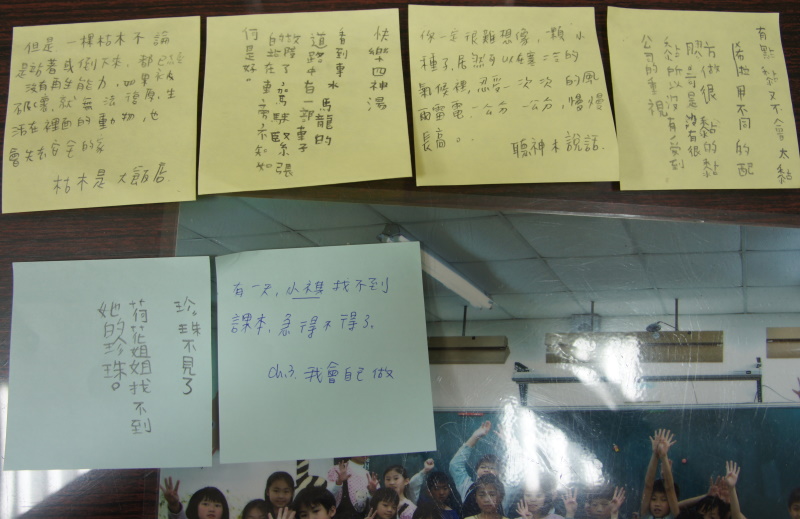 但是一棵枯木不論
是站著或倒下來,都已經
沒有再生能力,如果被
破壞,就無法復原,生
活在裡面的動物,也
會失去安全的家
枯木是大飯店
快樂四神湯
看到車水馬龍的
道路中有一部車子
故障了,駕駛緊張
的站在車旁不知如
何是好。
你一定很難想像,一顆小
種子,居然可以在寒冷的
氣候裡,忍受一次一次的風
雨雷電,一公分一公分,慢慢
長高。
聽神木說話
有點黏又不會太黏
用不同的配
方做很黏的黏
膠,可是沒有很
黏,所以沒有受到
公司的重視
珍珠不見了
荷花姐姐找不到
她的珍珠。
有一天,小祺找不到
課本,急得不得了。
Ch3. 我會自己做